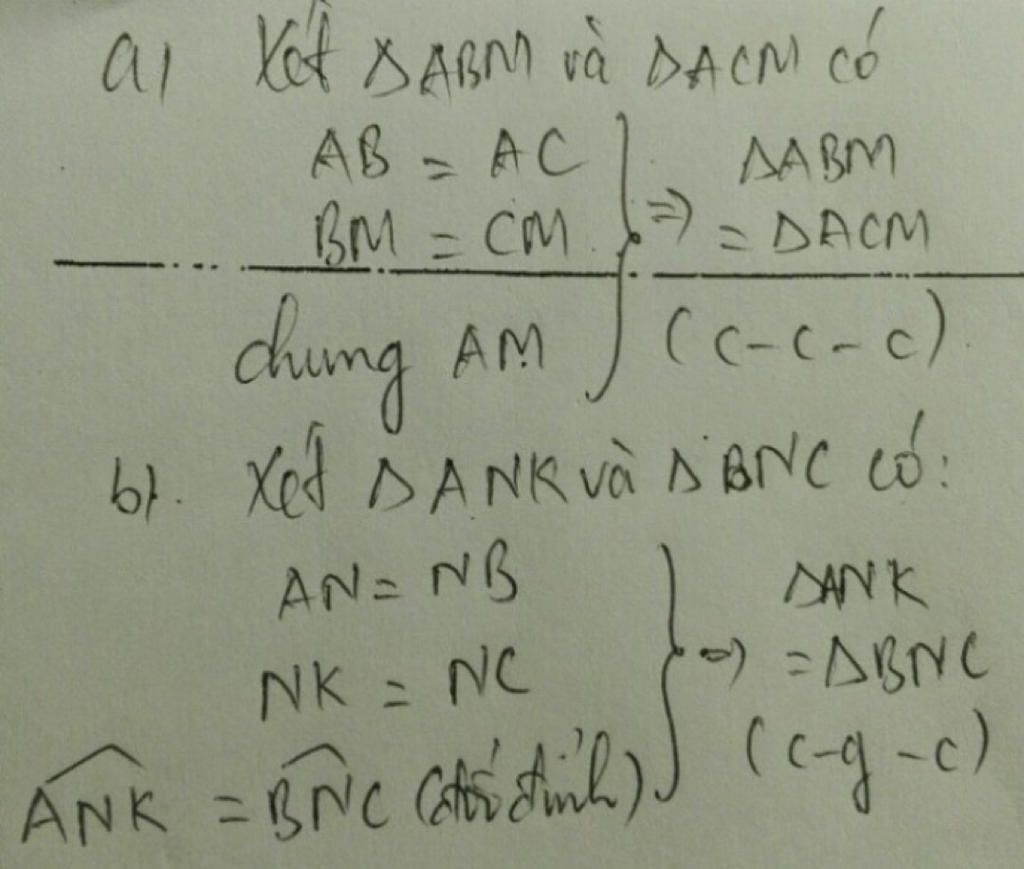 a) Xét ΔABM và ΔACM có
AB = AC
BM = CM
chung AM
} => ΔABM
= ΔACM
(c-c-c)
b). Xét ΔANK và ΔBNC có:
AN = NB
NK = NC
ANK = BNC (đối đỉnh)
} => ΔANK
= ΔBNC
(c-g-c)